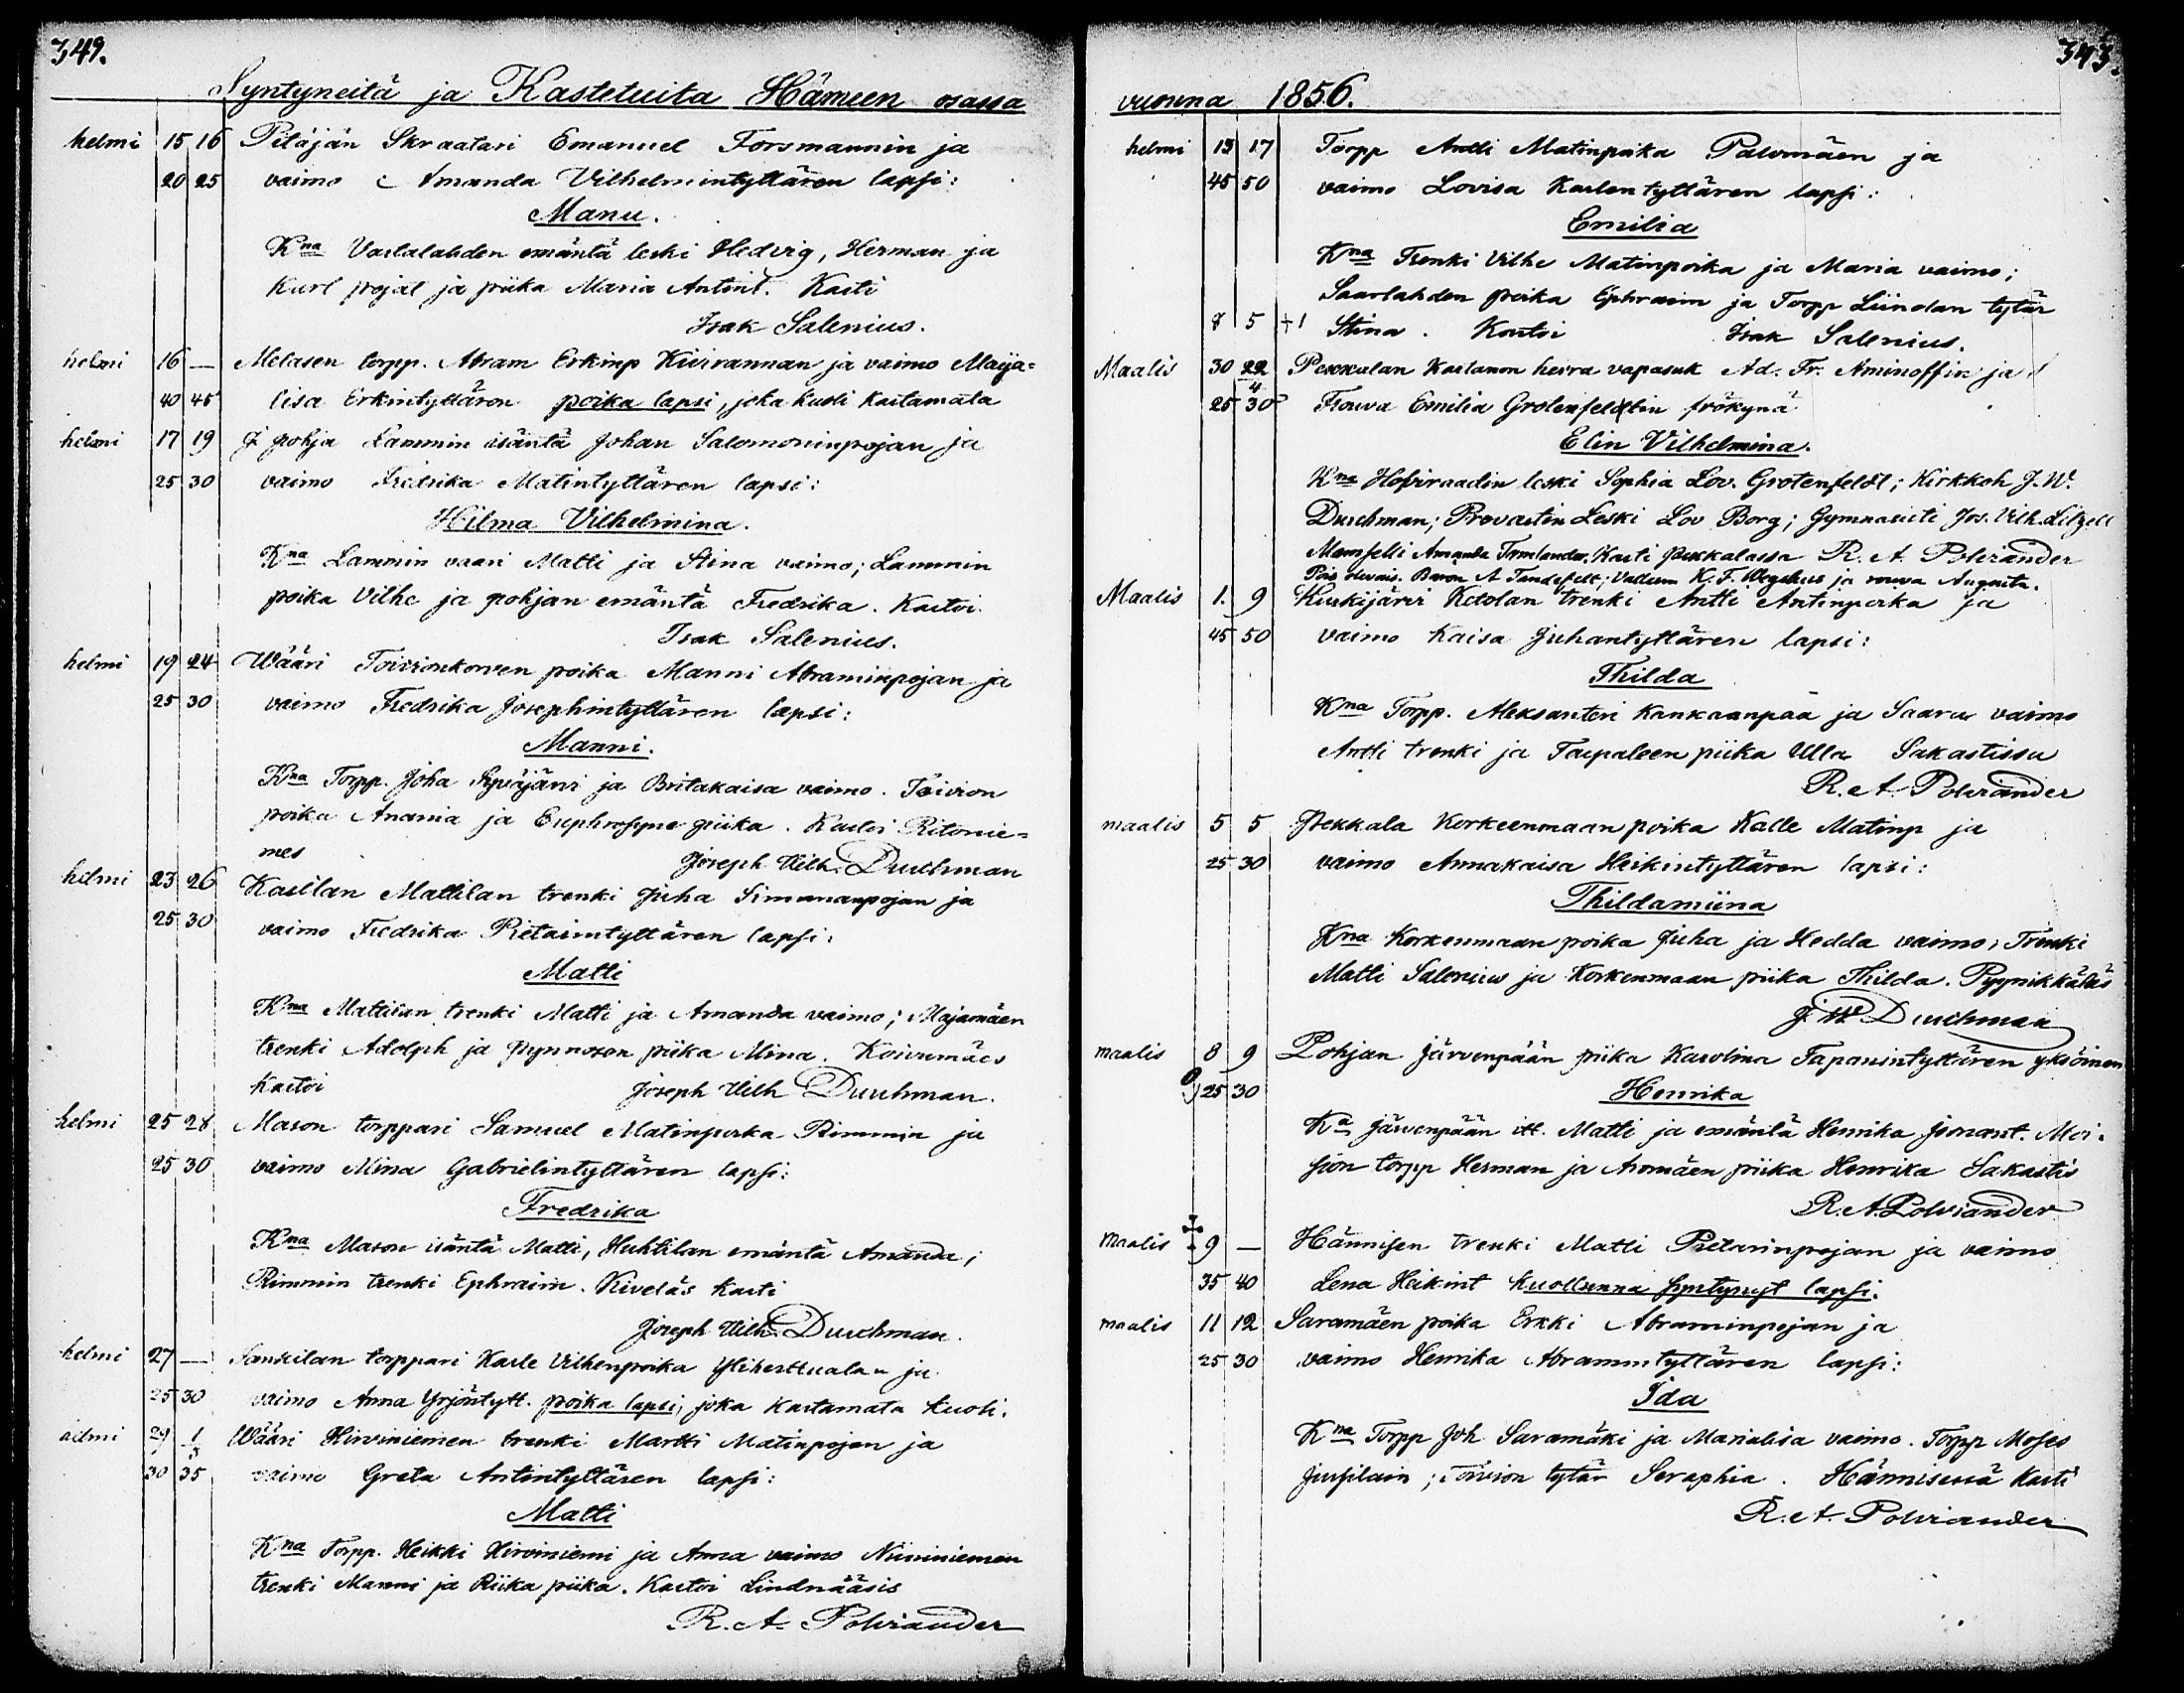 349.
Syntyneitä ja Kastetuita Hämeen osassa
helmi 15 16 Pitäjän Skraatari Emanuel Forsmannin ja
20 25 vaimo Amanda Vilhelmintyttären lapsi:
Manu.
Kna Vastalahden emäntä leski Hedvig, Herman ja
Karl pojat ja piika Maria Antint. Kasti
Isak Salenius.
helmi 16 — Metasen torpp. Abram Erkinp Kivirannan ja vaimo Maija=
40 45 lisa Erkintyttären poika lapsi, joka kuoli kastamata
helmi 17 19 J pohja Lammin isäntä Johan Salomoninpojan ja
25 30 vaimo Fredrika Matintyttären lapsi:
Hilma Vilhelmina.
Kna Lammin vaari Matti ja Stina vaimo; Lammin
poika Vilhe ja pohjan emäntä Fredrika. Kastoi
Isak Salenius.
helmi 19 24 Wääri Toivionkorven poika Manni Abraminpojan ja
25 30 vaimo Fredrika Josephintyttären lapsi:
Manni.
Kna Torpp. Joha Syväjärvi ja Britakaisa vaimo. Toivion
poika Anania ja Euphrosyne piika. Kastoi Ritonie=
mes Joseph Vilh. Durchman
helmi 23 26 Kastilan Mattilan trenki Juha Simunanpojan ja
25 30 vaimo Fredrika Pietarintyttären lapsi:
Matti
Kna Mattilan trenki Matti ja Amanda vaimo; Majamäen
trenki Adolph ja Pynnösen piika Mina. Koivumäes
Kastoi Joseph Vilh Durchman.
helmi 25 28 Mason torppari Samuel Matinpoika Rimmin ja
25 30 vaimo Mina Gabrielintyttären lapsi:
Fredrika
Kna Mason isäntä Matti, Huhtilan emäntä Amanda;
Rimmin trenki Ephraim. Kiveläs Kasti
Joseph Vilh. Durchman.
helmi 27 — Sankilan torppari Kalle Vilhenpoika Yliherttualan ja
25 30 vaimo Anna Yrjöntytt. poika lapsi, joka kastamata kuoli.
helmi 29 1/3 Wääri Hirviniemen trenki Martti Matinpojan ja
30 35 vaimo Greta Antintyttären lapsi:
Matti
Kna Torpp. Heikki Hirviniemi ja Anna vaimo Niininiemen
trenki Manni ja Riika piika. Kastoi Lindnääsis
R. A. Polviander
343.
vuonna 1856.
helmi 15 17 Torpp Antti Matinpoika Palomäen ja
45 50 vaimo Lovisa Karlentyttären lapsi:
Emilia
Kna Trenki Vilhe Matinpoika ja Maria vaimo;
Saarlahden poika Ephraim ja Torpp Liinolan tytär
8 5 +1 Stina. Kastoi Isak Salenius.
Maalis 30 22/4 Pekkalan Kartanon herra vapasuk Ad. Fr. Aminoffin ja
25 30 Frouva Emilia Grotenfeldtin frökynä
Elin Vilhelmina.
Kna Hofviraadin leski Sophia Lov. Grotenfeldt; Kirkkoh J. W.
Durchman; Provastin Leski Lov Borg; Gymnasisti Jos. Vilh Litzell
Mamselli Amanda Kasti Pekkalassa R. A. Polviander
Baron A Tandefelt; K. F. ja rouva Augusta.
Maalis 1. 9 Kurkijärvi Ketolan trenki Antti Antinpoika ja
45 50 vaimo Kaisa Juhantyttären lapsi:
Thilda
Kna Torpp. Aleksanteri Kankaanpää ja Saara vaimo
Antti trenki ja Taipaleen piika Ulla Sakastissa
R. A. Polviander
maalis 5 5 Pekkala Korkeenmaan poika Kalle Matinp ja
25 30 vaimo Annakaisa Heikintyttären lapsi:
Thildamiina
Kna Korkenmaan poika Juha ja Hedda vaimo; Trenki
Matti Salenius ja Korkenmaan piika Thilda. Pyynikkäläs
J. W. Durchman
maalis 8 9 Pohjan Järvenpään piika Karolina Tapanintyttären yksöinen
25 30 Henrika
Ka Järvenpään itt. Matti ja emäntä Henrika Moi-
sion torpp Herman ja Aromäen piika Henrika Sakastis
R. A. Polviander
Maalis 9 — Hännisen trenki Matti Pietarinpojan ja vaimo
35 40 Lena Heikint kuollunna syntynyt lapsi.
maalis 11 12 Saramäen poika Erkki Abraminpojan ja
25 30 vaimo Henrika Abramintyttären lapsi:
Ida
Kna Torpp Joh Saramäki ja Marialisa vaimo. Torpp Moses
Jussilain; Toivion tytär Seraphia. Hännisessä Kasti
R. A. Polviander